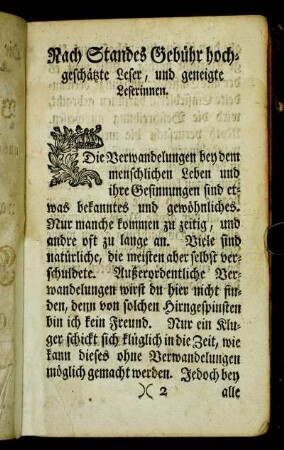 Nach Standes Gebühr hoch-
geschätzte Leser, und geneigte
Leserinnen.
Die Verwandelungen bey dem
menschlichen Leben und
ihre Gesinnungen sind et-
was bekanntes und gewöhnliches.
Nur manche kommen zu zeitig, und
andre oft zu lange an. Viele sind
natürliche, die meisten aber selbst ver-
schuldete. Außerordentliche Ver-
wandelungen wirst du hier nicht fin-
den, denn von solchen Hirngespinsten
bin ich kein Freund. Nur ein Klu-
ger schickt sich klüglich in die Zeit, wie
kann dieses ohne Verwandelungen
möglich gemacht werden. Jedoch bey
)( 2 alle